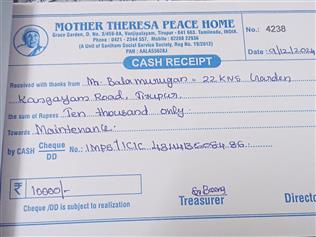 MOTHER THERESA PEACE HOME
Grace Garden, D. No. 3/459-8A, Vanjipalayam, Tirupur - 641 663. Tamilnadu, INDIA.
Phone : 0421 - 2344 557, Mobile : 82208 22936
(A Unit of Sanitham Social Service Society, Reg. No. 19/2012)
PAN : AALAS5628J
No.: 4238
CASH RECEIPT
Date : 9/12/2024
Received with thanks from Mr. Balamurugan = 22 KNS Garden
Kangayam Road, Tirupur.
the sum of Rupees Ten thousand only.
Towards Maintenance.
by CASH Cheque/DD No.: IMPS/ICIC
₹ 10000/-
Cheque /DD is subject to realization
Treasurer
Directo